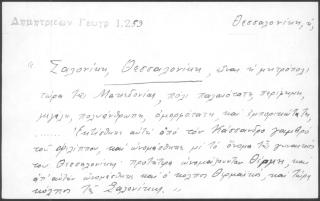 Δημητριεων Γεωγρ 1.253
Θεσσαλονίκη, ἡ
"Σαλονίκη, Θεσσαλονίκη, εἶναι ἡ μητρόπολι
τώρα τῆς Μακεδονίας, πόλι παλαιότατη, περίφημη,
μεγάλη, πολυάνθρωπη, ὀμορφότατη, καὶ ἐμπορικώτατη,
....... Ἐκτίσθηκε αὐτὴ ἀπὸ τὸν Κάσσανδρο γαμβρὸ
τοῦ Φιλίππου, καὶ ὠνομάσθηκε μὲ τὸ ὄνομα τῆς γυναικός
του Θεσσαλονίκη· προτύτερα ὠνομάζουνταν Θέρμη, καὶ
ἀπ' αὐτὴν ὠνομάσθηκε καὶ ὁ κόλπος Θερμαϊκός, καὶ τώρα
κόλπος τῆς Σαλονίκης."